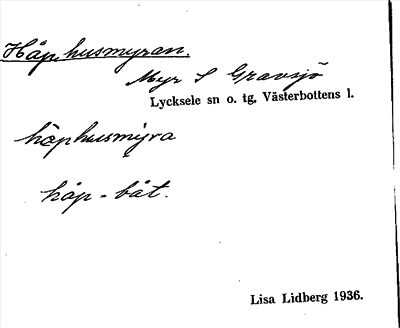 Håphusmyran.
Myr S Gravsjö
Lycksele sn o. tg, Västerbottens l.
håphusmyra
håp - båt.
Lisa Lidberg 1936.